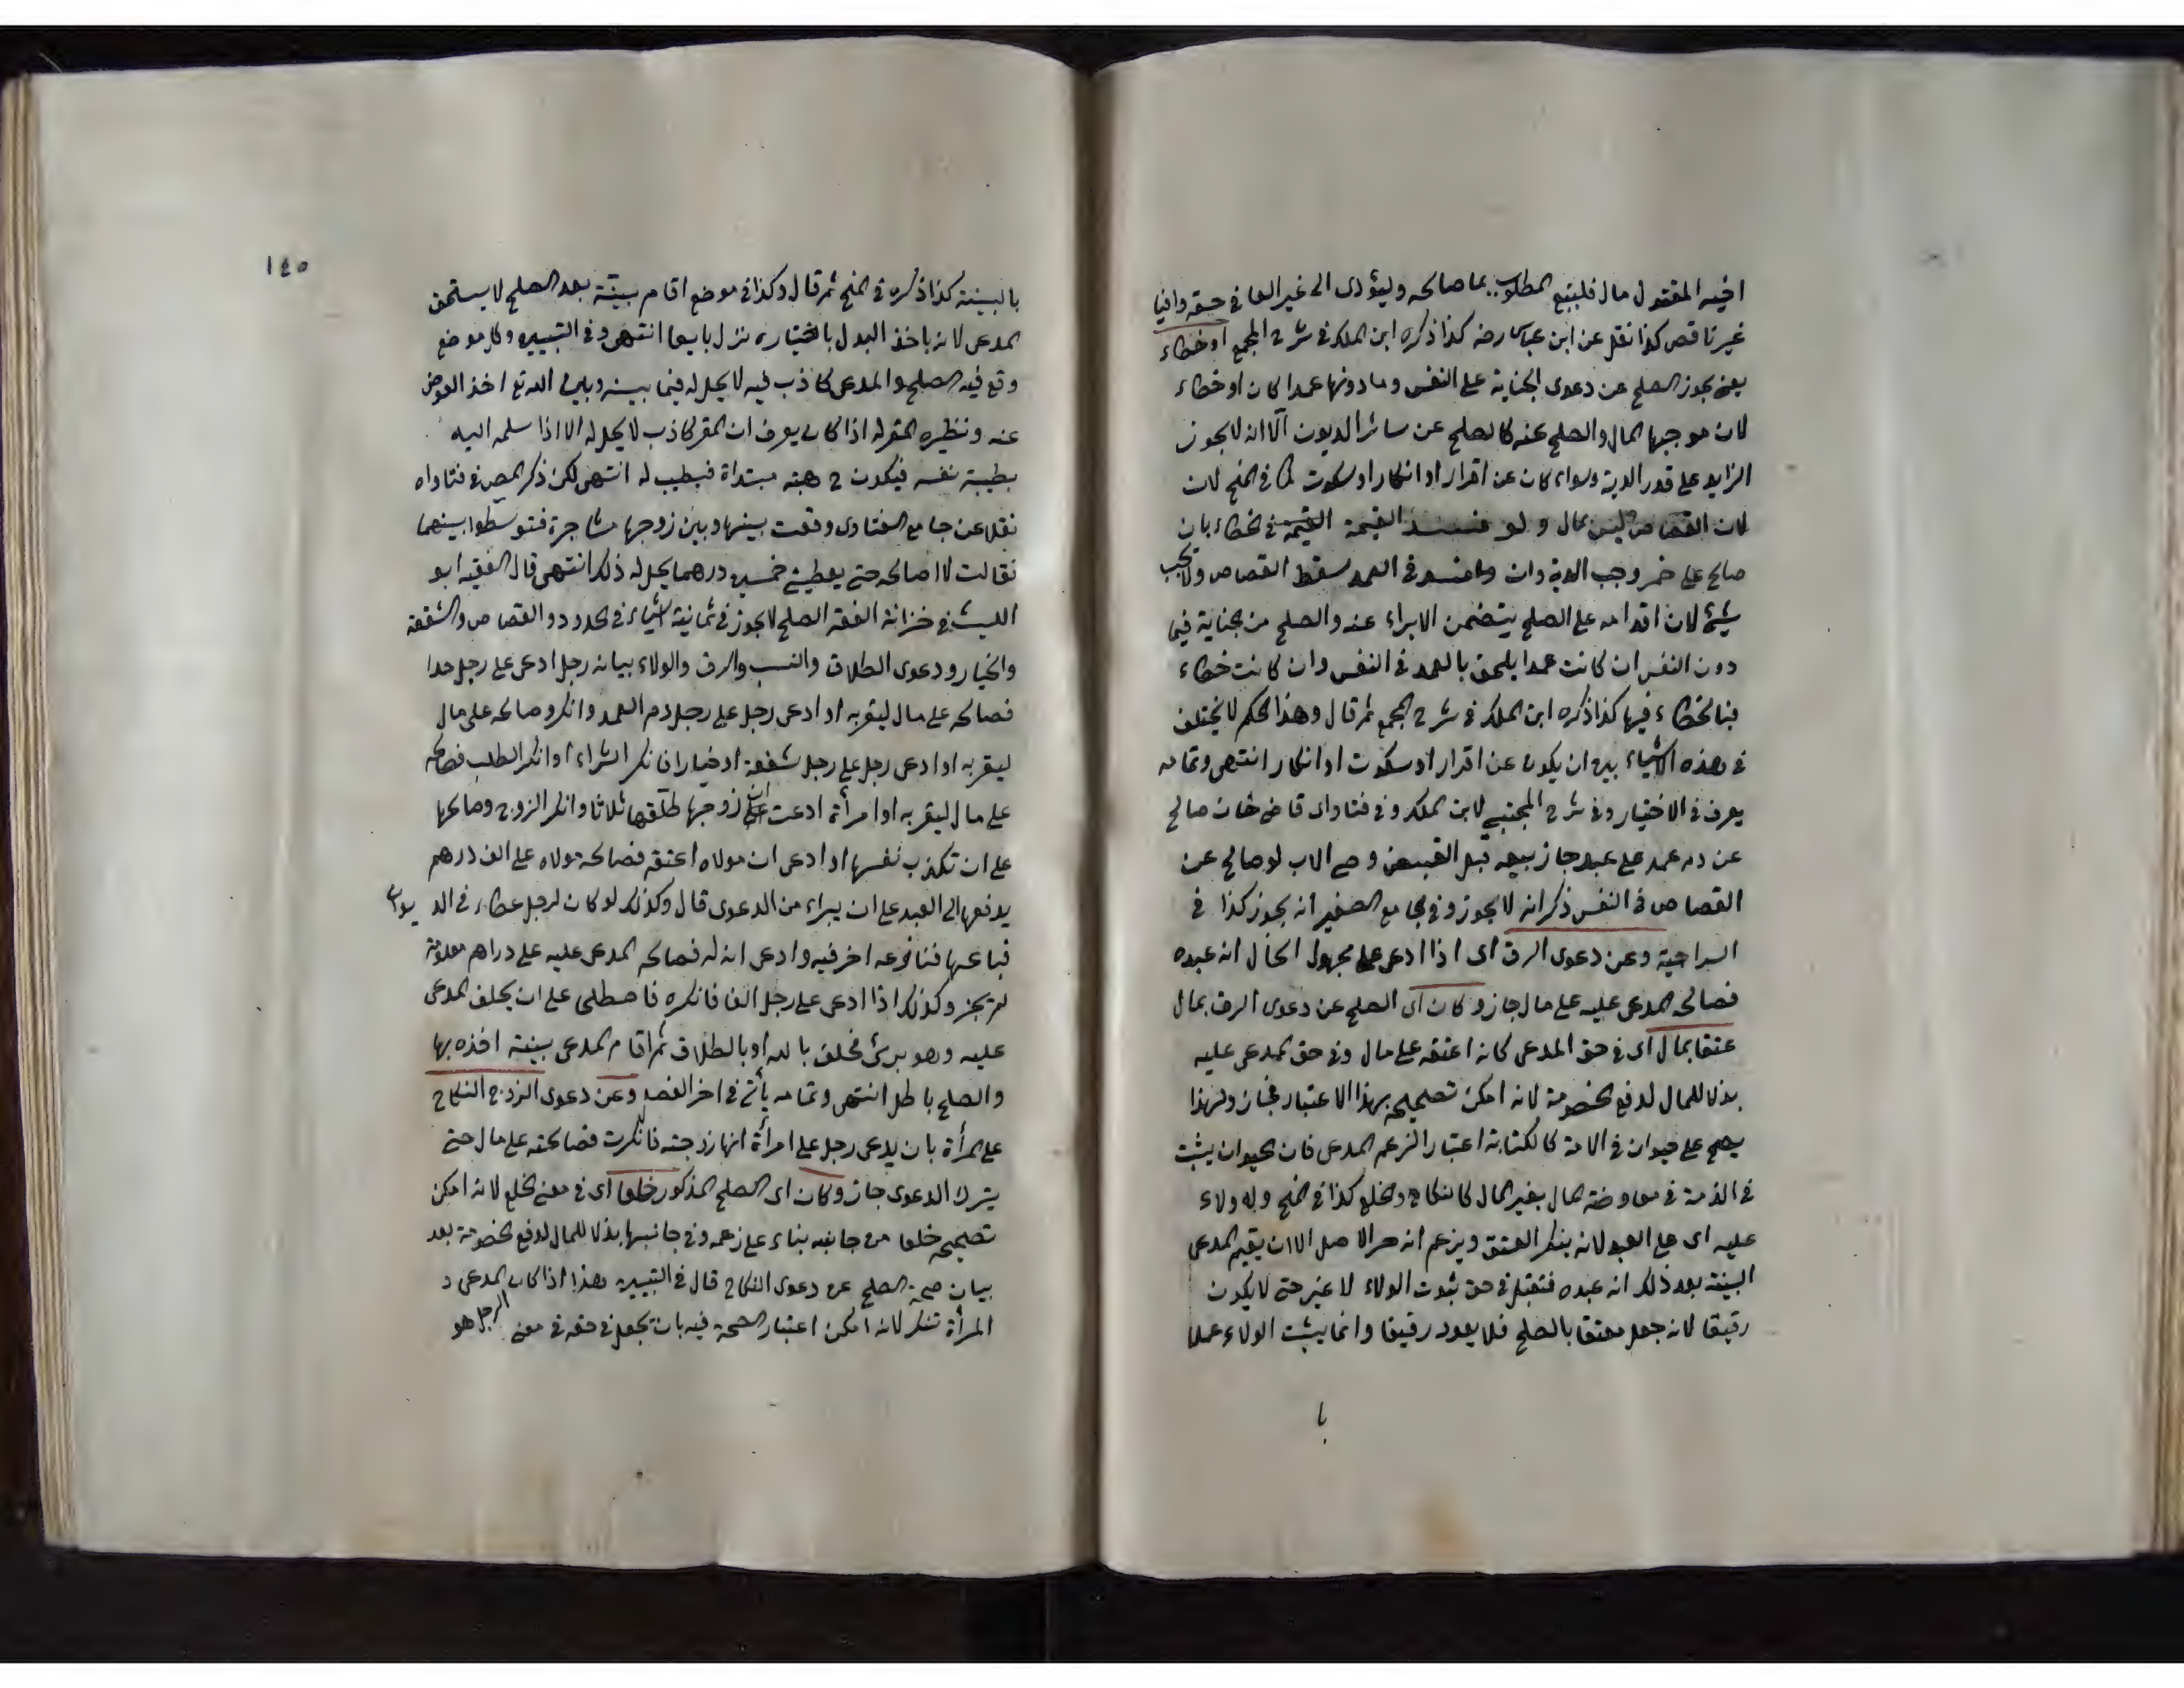 اخيه المقتول مال فليتبع المطلوب بما صالحه وليؤدى الى غير العافى حقه وافيا
غير ناقص كذا نقل عن ابن عباس رضه كذا ذكره ابن الملك فى شرح المجمع او خطاء
يعنى يجوز الصلح عن دعوى الجناية على النفس وما دونها عمدا كان او خطاء
لان موجبها المال والصلح عنه كالصلح عن سائر الديون الا انه لا يجوز
الزايد على قدر الدية وسواء كان عن اقرار او انكار او سكوت كما فى المنح لان
لان القصاص ليس بمال و لو القيمة القيمة فى الخطاء بان
صالح على خمر وجب الدية وان وان فسد فى العمد سقط القصاص ولا يجب
شئ لان اقدامه على الصلح يتضمن الابراء عنه والصلح من جناية فيما
دون النفس ان كانت عمدا يلحق بالعمد فى النفس وان كانت خطاء
فبالخطاء فيها كذا ذكره ابن الملك فى شرح المجمع ثم قال وهذا الحكم لا يختلف
فى هذه الاشياء بين ان يكون عن اقرار او سكوت او انكار انتهى وتمامه
يعرف فى الاختيار وفى شرح المجتبى لابن الملك وفى فتاواى قاضى خان صالح
عن دم عمد على عبد جاز بيعه قبل القبض وصى الاب لو صالح عن
القصاص فى النفس ذكر انه لا يجوز وفى الجامع الصغير انه يجوز كذا فى
السراجية وعن دعوى الرق اى اذا ادعى على مجهول الحال انه عبده
فصالحه المدعى عليه على مال جاز وكان اى الصلح عن دعوى الرق بمال
عتقا بمال اى فى حق المدعى كانه اعتقه على مال وفى حق المدعى عليه
بذلا للمال لدفع الخصومة لانه امكن تصحيحه بهذا الاعتبار فجاز ولهذا
يصح على حيوان فى الامة كالكتابة اعتبارا لزعم المدعى فان الحيوان يثبت
فى الذمة فى معاوضة المال بغير المال كالنكاح والخلع كذا فى المنح وله ولاء
عليه اى على العبد لانه ينكر العتق ويزعم انه حر الاصل الا ان يقيم المدعى
البينة بعد ذلك انه عبده فتقبل فى حق ثبوت الولاء لا غير حتى لا يكون
رقيقا لانه جعل معتقا بالصلح فلا يعود رقيقا وانما يثبت الولاء عملا
با
١٤٥
بالبينة كذا ذكره فى المنح ثم قال وكذا فى موضع اقام بينة بعد الصلح لا يستحق
المدعى لانه باخذ البدل باختياره نزل بايعا انتهى وفى التبيين وكل موضع
وقع فيه الصلح والمدعى كاذب فيه لا يحل له فيما بينه وبين الله تع اخذ العوض
عنه ونظيره المقر له اذا كان يعرف ان المقر كاذب لا يحل له الا اذا سلمه اليه
بطيبة نفسه فيكون ح هبة مبتداة فيطيب له انتهى لكن ذكر المص فى فتاواه
نقلا عن جامع الفتاوى وقعت بينها وبين زوجها مشاجرة فتوسطوا بينهما
فقالت لا اصالحه حتى يعطينى خمسين درهما يحل له ذلك انتهى قال الفقيه ابو
الليث فى خزانة الفقه الصلح لا يجوز فى ثمانية اشياء فى الحدود والقصاص والشفعة
والخيار ودعوى الطلاق والنسب والرق والولاء بيانه رجل ادعى على رجل حدا
فصالحه على مال ليقر به او ادعى رجل على رجل دم العمد وانكر وصالحه على مال
ليقر به او ادعى رجل على رجل شفعة او خيارا فانكر الشراء او انكر الطلب فصالحه
على مال ليقر به او امرأة ادعت ان زوجها طلقها ثلاثا وانكر الزوج وصالحها
على ان تكذب نفسها او ادعى ان مولاه اعتقه فصالحه مولاه على الف درهم
يدفعها الى العبد على ان يبراء من الدعوى قال وكذلك لو كان لرجل عطاء فى الديوان
فباعها فنازعه اخر فيه وادعى انه له فصالحه المدعى عليه على دراهم معلومة
لم يجز وكذلك اذا ادعى على رجل الفا فانكره فاصطلحى على ان يحلف المدعى
عليه وهو برئ فحلف بالله او بالطلاق ثم اقام المدعى بينته اخذه بها
والصلح باطل انتهى وتمامه يأتى فى اخر الفصل وعن دعوى الزوج النكاح
على المرأة بان يدعى رجل على امرأة انها زوجته فانكرت فصالحته على مال حتى
يترك الدعوى جاز وكان اى الصلح المذكور خلعا اى فى معنى الخلع لانه امكن
تصحيحه خلعا من جانبه بناء على زعمه وفى جانبها بذلا للمال لدفع الخصومة بعد
بيان صحة الصلح عن دعوى النكاح قال فى التبيين هذا اذا كان المدعى و
المرأة تنكر لانه امكن اعتبار الصحة فيه بان يجعل فى حقه فى معنى الرجل هو